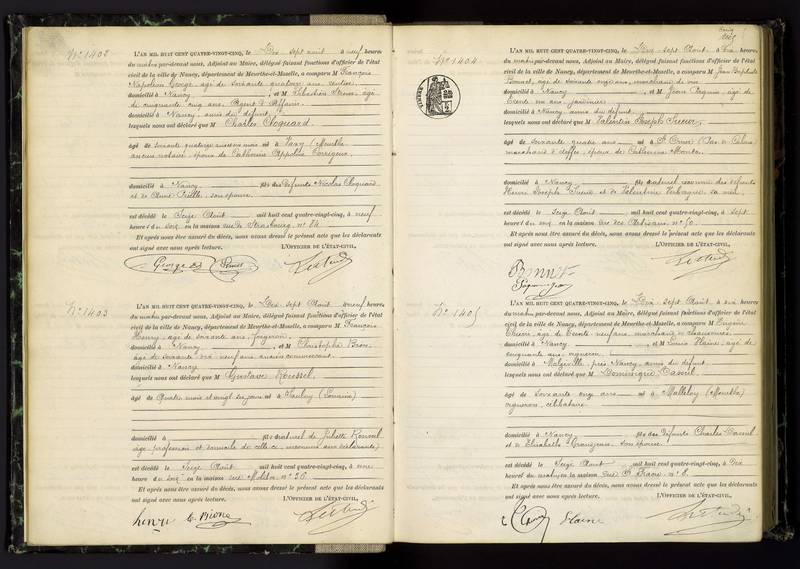 N° 1402
L'AN MIL HUIT CENT QUATRE-VINGT-CINQ, le Dix-sept août à neuf heures
du matin par-devant nous, Adjoint au Maire, délégué faisant fonctions d'officier de l'état
civil de la ville de Nancy, département de Meurthe-et-Moselle, a comparu M François
Napoléon George, âgé de soixante quatorze ans, rentier
domicilié à Nancy, et M Sébastien, âgé
de cinquante cinq ans, Agent d'affaires
domicilié à Nancy, amis du défunt
lesquels nous ont déclaré que M Charles Cloquard
âgé de soixante quatorze ans né à (Meurthe
ancien notaire, époux de Catherine Appoline
domicilié à Nancy fils des défunts Nicolas Cloquard
et de son épouse
est décédé le Seize Août mil huit cent quatre-vingt-cinq, à neuf
heures du soir en la maison rue de Strasbourg n° 84
Et après nous être assuré du décès, nous avons dressé le présent acte que les déclarants
ont signé avec nous après lecture. L'OFFICIER DE L'ÉTAT-CIVIL,
George
N° 1403
L'AN MIL HUIT CENT QUATRE-VINGT-CINQ, le Dix-sept Août à neuf heures
du matin par-devant nous, Adjoint au Maire, délégué faisant fonctions d'officier de l'état
civil de la ville de Nancy, département de Meurthe-et-Moselle, a comparu M François
Henry, âgé de soixante ans,
domicilié à Nancy, et M Christophe
âgé de soixante dix neuf ans ancien commerçant
domicilié à Nancy
lesquels nous ont déclaré que M Gustave Roussel
âgé de Quatre mois et vingt six jours né à Saulny (Lorraine)
domicilié à fils naturel de Juliette Roussel
âge, profession et domicile de celle ci, inconnus aux déclarants
est décédé le Seize Août mil huit cent quatre-vingt-cinq, à onze
heures du soir en la maison rue n° 26
Et après nous être assuré du décès, nous avons dressé le présent acte que les déclarants
ont signé avec nous après lecture. L'OFFICIER DE L'ÉTAT-CIVIL,
henry
N° 1404
L'AN MIL HUIT CENT QUATRE-VINGT-CINQ, le Dix-sept Août à dix heures
du matin par-devant nous, Adjoint au Maire, délégué faisant fonctions d'officier de l'état
civil de la ville de Nancy, département de Meurthe-et-Moselle, a comparu M Jean Baptiste
Bonnet, âgé de soixante onze ans, marchand de vin
domicilié à Nancy, et M Jean, âgé de
trente un ans, jardinier
domicilié à Nancy, amis du défunt
lesquels nous ont déclaré que M Valentin Joseph Sueur
âgé de soixante quatre ans né à St Omer (Pas de Calais
marchand d'étoffes, époux de Catherine
domicilié à Nancy fils naturel reconnu des défunts
Henri Joseph Sueur et de Valentine sa mère
est décédé le Seize Août mil huit cent quatre-vingt-cinq, à sept
heures du soir en la maison rue des Artisans n° 50
Et après nous être assuré du décès, nous avons dressé le présent acte que les déclarants
ont signé avec nous après lecture. L'OFFICIER DE L'ÉTAT-CIVIL,
N° 1405
L'AN MIL HUIT CENT QUATRE-VINGT-CINQ, le Dix-sept Août à dix heures
du matin par-devant nous, Adjoint au Maire, délégué faisant fonctions d'officier de l'état
civil de la ville de Nancy, département de Meurthe-et-Moselle, a comparu M Eugène
âgé de trente neuf ans, marchand de chaussures
domicilié à Nancy, et M Louis Haine, âgé de
cinquante ans, vigneron
domicilié à Malzéville, près Nancy, amis du défunt
lesquels nous ont déclaré que M Dominique
âgé de soixante onze ans né à Malleloy (Meurthe)
vigneron, célibataire
domicilié à Nancy fils des défunts Charles
et d'Elisabeth son épouse
est décédé le Seize Août mil huit cent quatre-vingt-cinq, à dix
heures du matin en la maison rue n° 6
Et après nous être assuré du décès, nous avons dressé le présent acte que les déclarants
ont signé avec nous après lecture. L'OFFICIER DE L'ÉTAT-CIVIL,
Haine